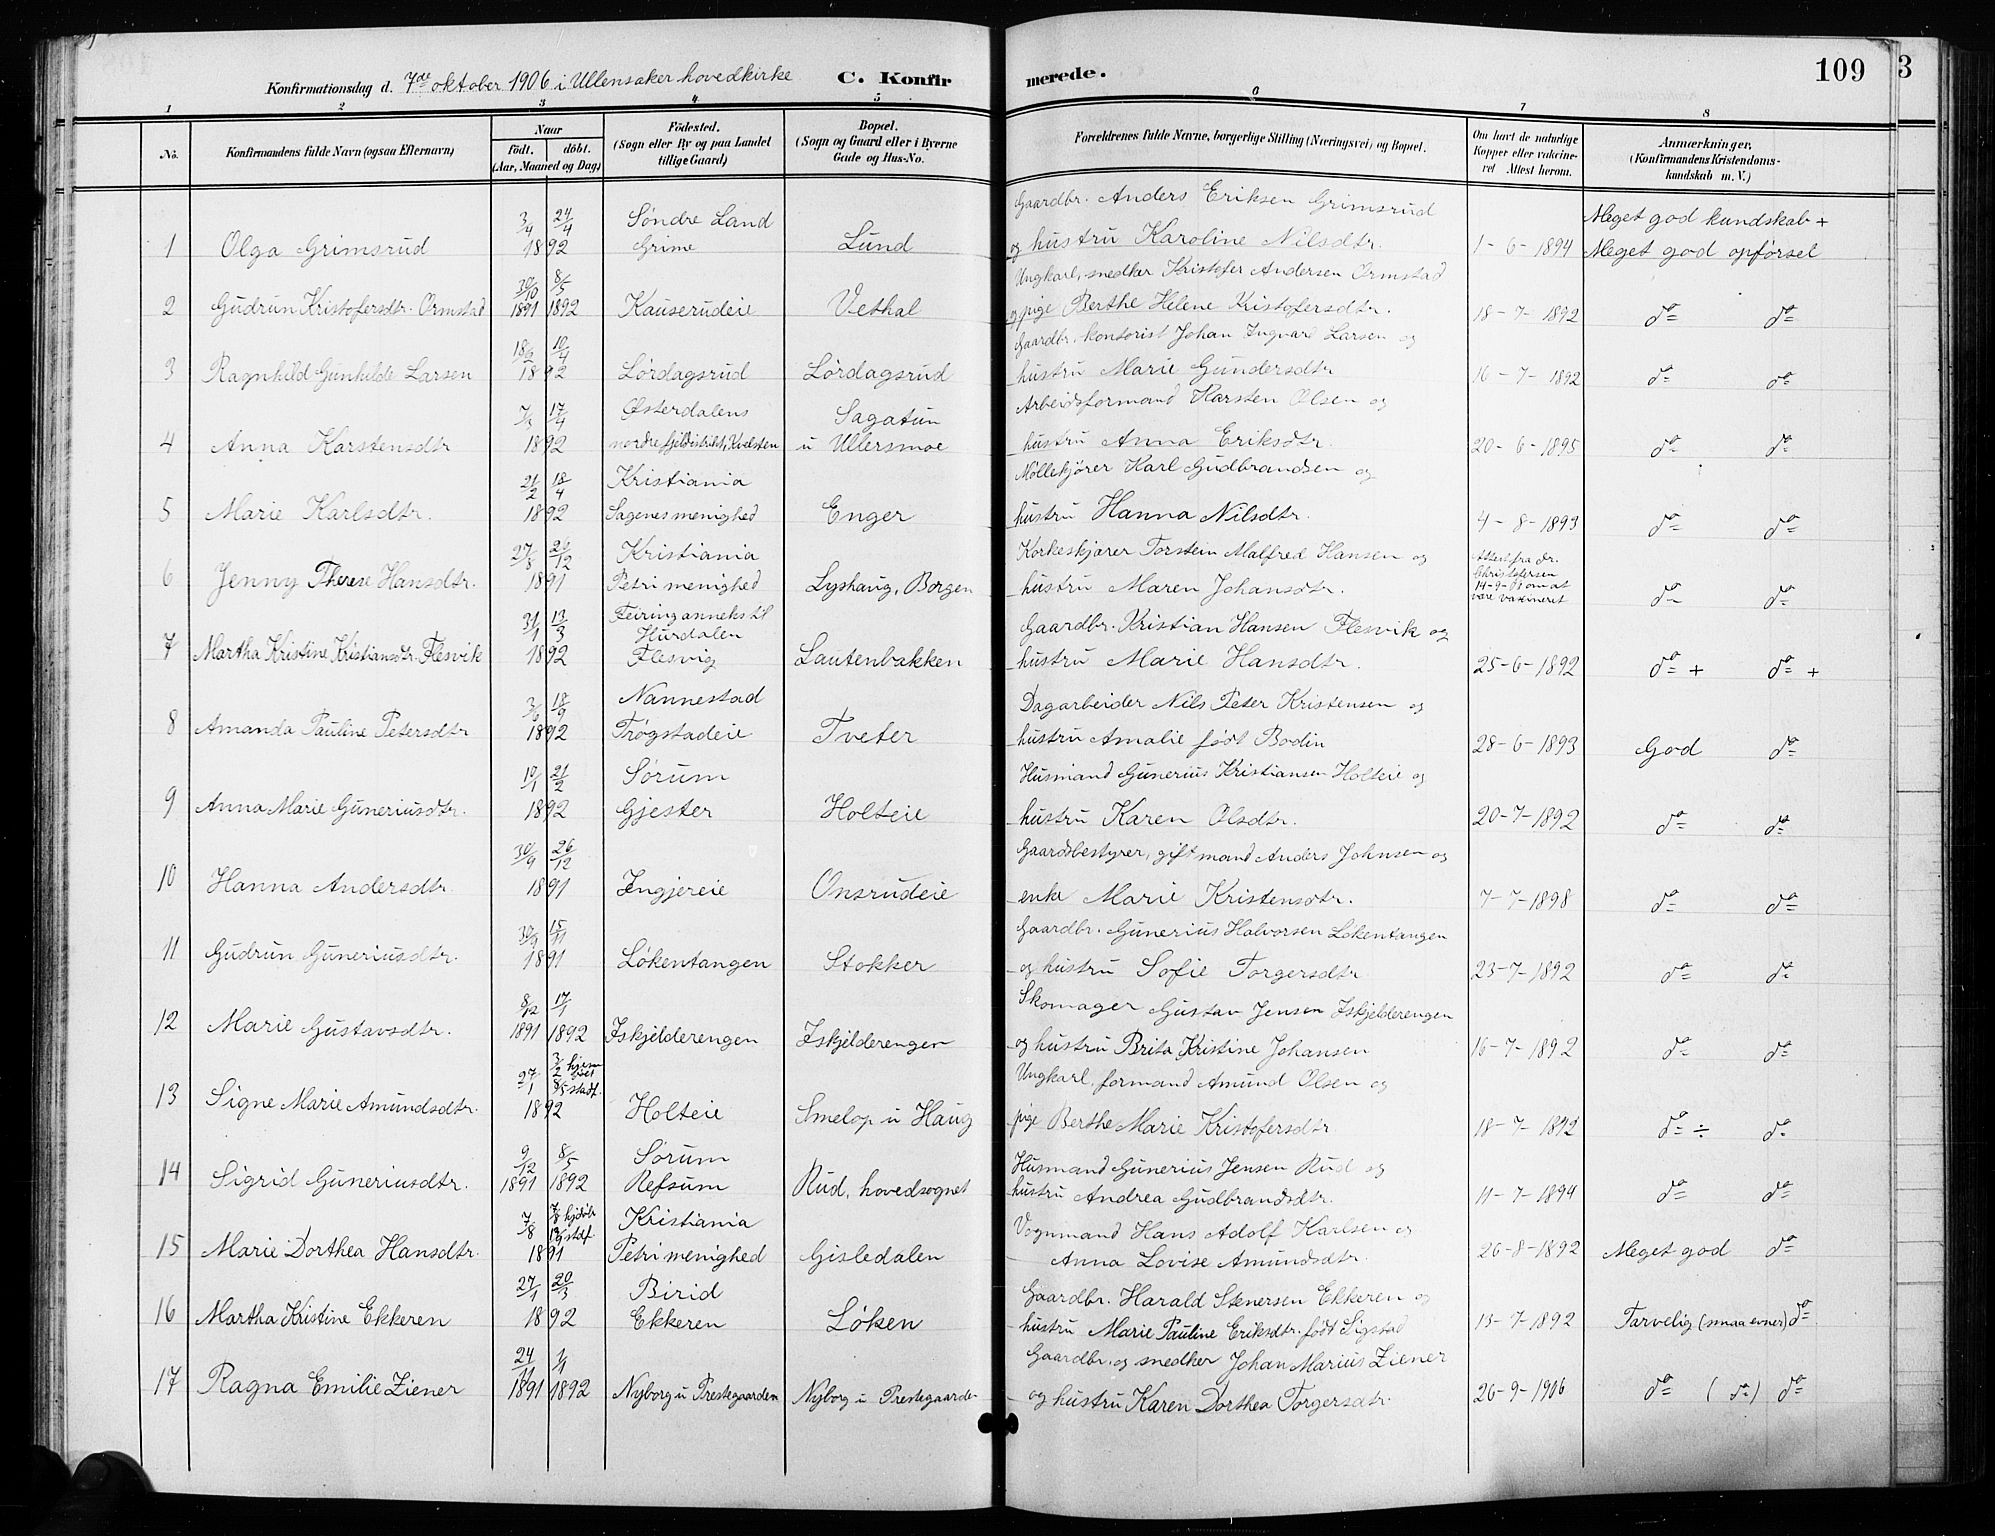 Konfirmationsdag d. 7de oktober 1906 i Ullensaker hovedkirke C. Konfirmerede. 109 3
1 2 3 4 5 6 7 8
No. Konfirmandens fulde Navn (ogsaa Efternavn) Naar født. døbt. (Aar, Maaned og Dag) Fødested. (Sogn eller By og paa Landet tillige Gaard) Bopæl. (Sogn og Gaard eller i Byerne Gade og Hus-No. Forældrenes fulde Navne, borgerlige Stilling (Næringsvei) og Bopæl. Om havt de naturlige Kopper eller vaksineret Attest herom. Anmærkninger, (Konfirmandens Kristendomskundskab m. V.)
3/4 24/4 Søndre Land Gaardbr. Anders Eriksen Grimsrud Meget god kundskab +
1 Olga Grimsrud 1892 Grime Lund og hustru Karoline Nilsdtr. 1-6-1894 Meget god opførsel
30/10 8/5 Ungkarl, snedker Kristofer Andersen Ormstad
2 Gudrun Kristofersdtr. Ormstad 1891 1892 Kauserudeie Vethal og pige Berthe Helene Kristofersdtr. 18-7-1892 do do
10/4 Gaardbr. kontorist Johan Ingvart Larsen og
3 Ragnhild Gunhilde Larsen 1892 Lørdagsrud Lørdagsrud hustru Marie Gundersdtr 16-7-1892 do do
17/4 Østerdalens Sagatun Arbeidsformand Karsten Olsen og
4 Anna Karstensdtr 1892 nordre fjelddistrikt, u Ullersmoe hustru Anna Eriksdtr. 20-6-1895 do do
21/2 18/4 Kristiania Møllekjører Karl Gudbrandsen og
5 Marie Karlsdtr. 1892 Sagenes menighed Enger hustru Hanna Nilsdtr. 4-8-1893 do do
27/8 26/12 Kristiania Korkeskjærer Torstein Malfred Hansen og Attest fra dr. Christofersen
6 Jenny Therese Hansdtr. 1891 Petri menighed Lyshaug, Borgen hustru Maren Johansdtr. 14-9-01 om at være vaxineret do do
31/1 13/3 Feiring anneks til Hurdalen Gaardbr. Kristian Hansen Flesvik og
7 Martha Kristine Kristiansdtr. Flesvik 1892 Flesvig Lautenbakken hustru Marie Hansdtr. 25-6-1892 do + do +
3/6 18/9 Nannestad Dagarbeider Nils Peter Kristensen og
8 Amanda Pauline Petersdtr 1892 Trøgstadeie Tveter hustru Amalie født Bodin 28-6-1893 God do
10/1 21/2 Sørum Husmand Gunerius Kristiansen Holteie og
9 Anna Marie Guneriusdtr. 1892 Gjester Holteie hustru Karen Olsdtr. 20-7-1892 do do
30/9 26/12 Gaardsbestyrer, gift mand Anders Johnsen og
10 Hanna Andersdtr. 1891 Ingjereie Onsrudeie enke Marie Kristensdtr. 7-7-1898 do do
30/9 15/11 Gaardbr. Gunerius Halvorsen Løkentangen
11 Gudrun Guneriusdtr. 1891 Løkentangen Stokker og hustru Sofie Torgersdtr 23-7-1892 do do
8/12 17/1 Skomager Gustav Jensen Iskjelderengen
12 Marie Gustavsdtr. 1891 1892 Iskjelderengen Iskjelderengen og hustru Brita Kristine Johansen 16-7-1892 do do
27/1 8/5 stadf. Ungkarl, formand Amund Olsen og
13 Signe Marie Amundsdtr. 1892 Holteie Smelop u Haug pige Berthe Marie Kristofersdtr. 18-7-1892 do ÷ do
9/12 8/5 Sørum Husmand Gunerius Jensen Rud og
14 Sigrid Guneriusdtr. 1891 1892 Refsum Rud, hovedsognet hustru Andrea Gudbrandsdtr. 11-7-1894 do do
7/8 Kristiania Vognmand Hans Adolf Karlsen og
15 Marie Dorthea Hansdtr. 1891 Petri menighed Gisledalen Anna Lovise Amundsdtr. 26-8-1892 Meget god do
27/1 20/3 Birid Gaardbr. Harald Stenersen Ekkeren og
16 Martha Kristine Ekkeren 1892 Ekkeren Løken hustru Marie Pauline Eriksdtr. født Sigstad 13-7-1892 Tarvelig (smaa evner) do
24/11 1/1 Gaardbr. og snedker Johan Marius Ziener
17 Ragna Emilie Ziener 1891 1892 Nyborg u Prestegaarden Nyborg u Prestegaarde- og hustru Karen Dorthea Torgersdtr. 26-9-1906 do (do) do